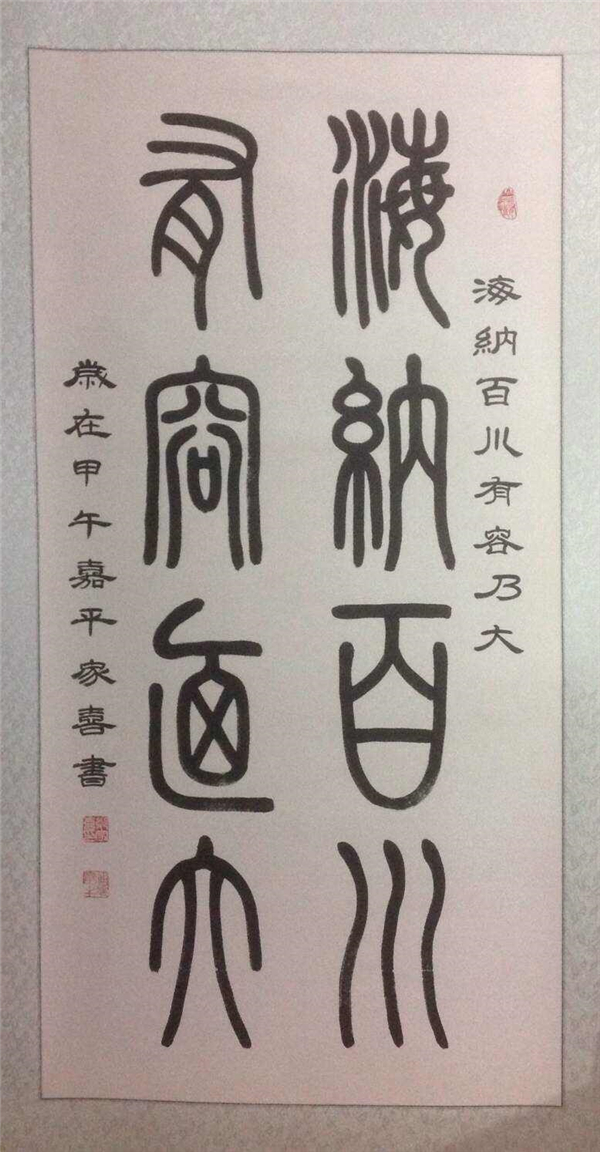 海納百川有容乃大
海納百川
有容迺大
歲在甲午嘉平家喜書